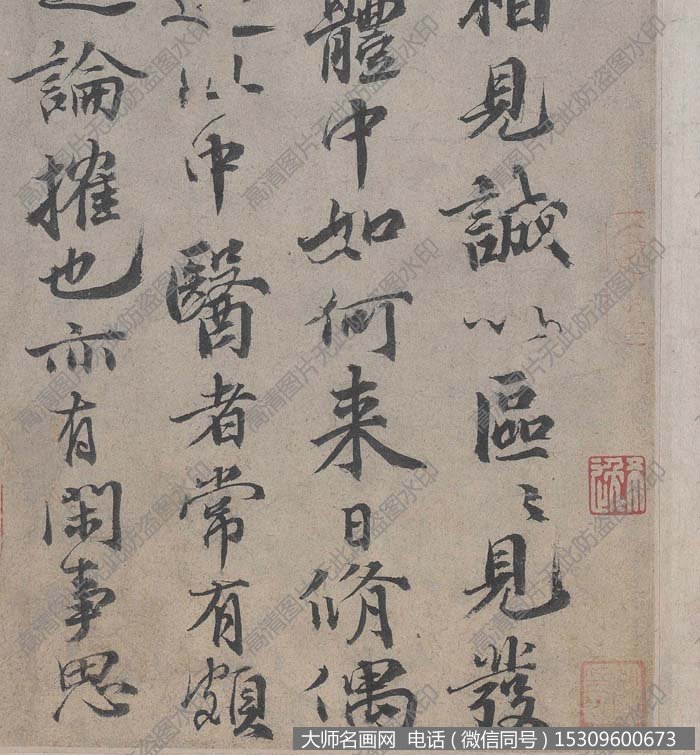 相見誠以區〻見發
體中如何来日脩偶
以中醫者常有頗
論搉也亦有閑事思
大师名画网 电话（微信同号）15309600673
高清图片无此防盗图水印